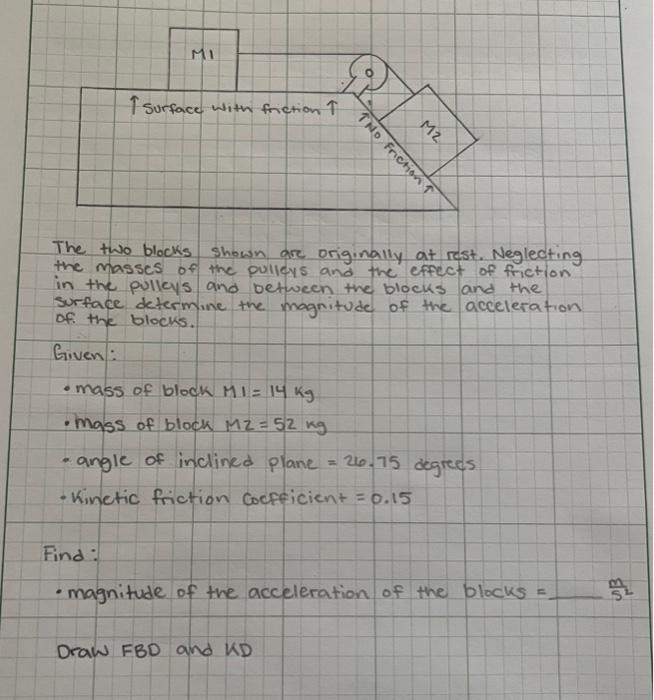 M1
↑ Surface with friction ↑
↑ No friction ↑
M2
The two blocks shown are originally at rest. Neglecting
the masses of the pulleys and the effect of friction
in the pulleys and between the blocks and the
surface determine the magnitude of the acceleration
of the blocks.
Given:
• mass of block M1 = 14 kg
• mass of block M2 = 52 kg
• angle of inclined plane = 26.75 degrees
• Kinetic friction coefficient = 0.15
Find:
• magnitude of the acceleration of the blocks = ____ m/s²
Draw FBD and KD